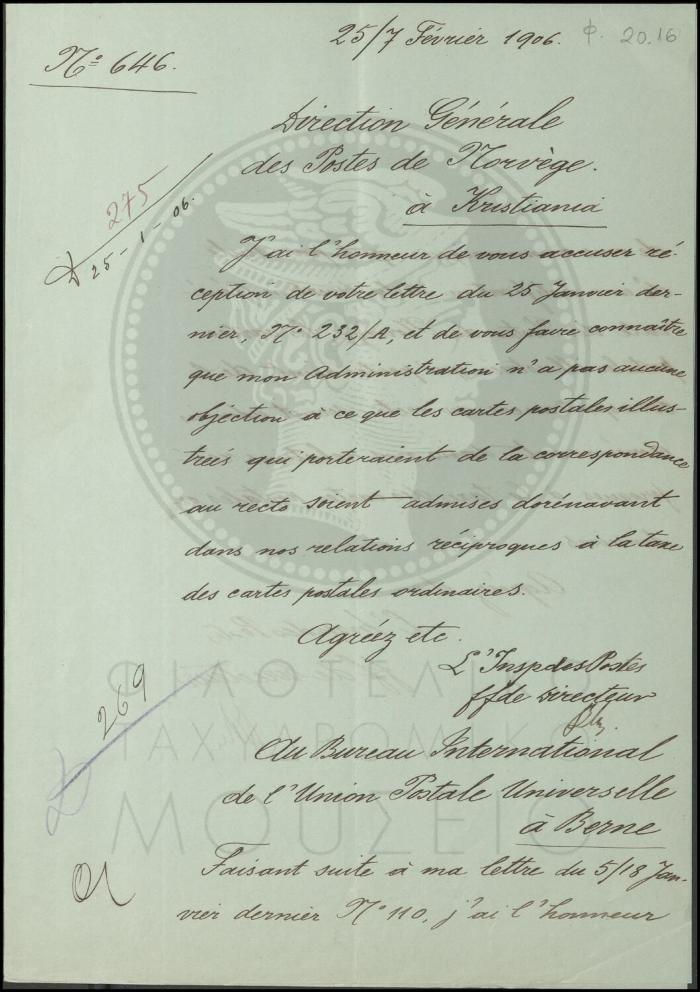 25/7 Février 1906.
φ. 20.16
Nº 646.
Direction Générale
des Postes de Norvège.
à Kristiania
275
25-1-06.
J'ai l'honneur de vous accuser ré-
ception de votre lettre du 25 Janvier der-
nier, Nº 232/A, et de vous faire connaître
que mon Administration n'a pas aucune
objection à ce que les cartes postales illus-
treés qui porteraient de la correspondance
au recto soient admises dorénavant
dans nos relations réciproques à la taxe
des cartes postales ordinaires.
Agréez etc.
L'Insp des Postes
ff de Directeur
269
Au Bureau International
de l'Union Postale Universelle
à Berne
Faisant suite à ma lettre du 5/18 Jan-
vier dernier Nº 110, j'ai l'honneur
ΦΙΛΟΤΕΛΙΚΟ
ΤΑΧΥΔΡΟΜΙΚΟ
ΜΟΥΣΕΙΟ